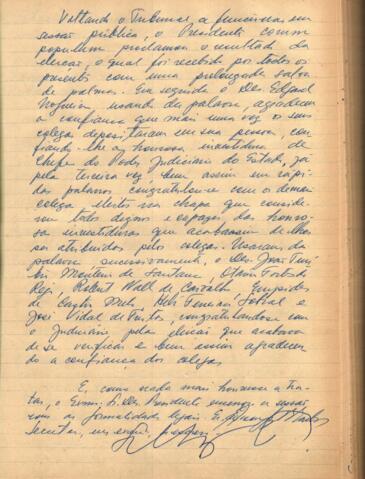 Voltando o Tribunal a funcionar em
sessão pública, o Presidente comm
proclamou o resultado da
eleição, o qual foi recebido por todos os
presentes com uma prolongada salva
de palmas. Em seguida o Des. Edgard
Nogueira, usando da palavra, agradeceu
a confiança que mais uma vez os seus
colegas depositaram em sua pessoa, con
fiando-lhe a honrosa investidura de
Chefe do Poder Judiciário do Estado, já
pela terceira vez e bem assim em rápi
das palavras congratulou-se com os demais
colegas eleitos na chapa que conside
rou todos dignos e capazes das honro
sas investiduras que acabavam de lhes
ser atribuidas pelos colegas. Usaram da
palavra sucessivamente, o Des. João
Monteiro de Santana,
Robert Wall de Carvalho,
de Castro Melo,
José Vidal de Freitas, congratulando-se com
o Judiciário pela eleição que acabava
de se verificar e bem assim agradecen
do a confiança dos colegas
E, como nada mais houvesse a tra
tar, o Exmo. Sr. Des. Presidente encerrou a sessão
com as formalidades legais. Eu,
Secretário,